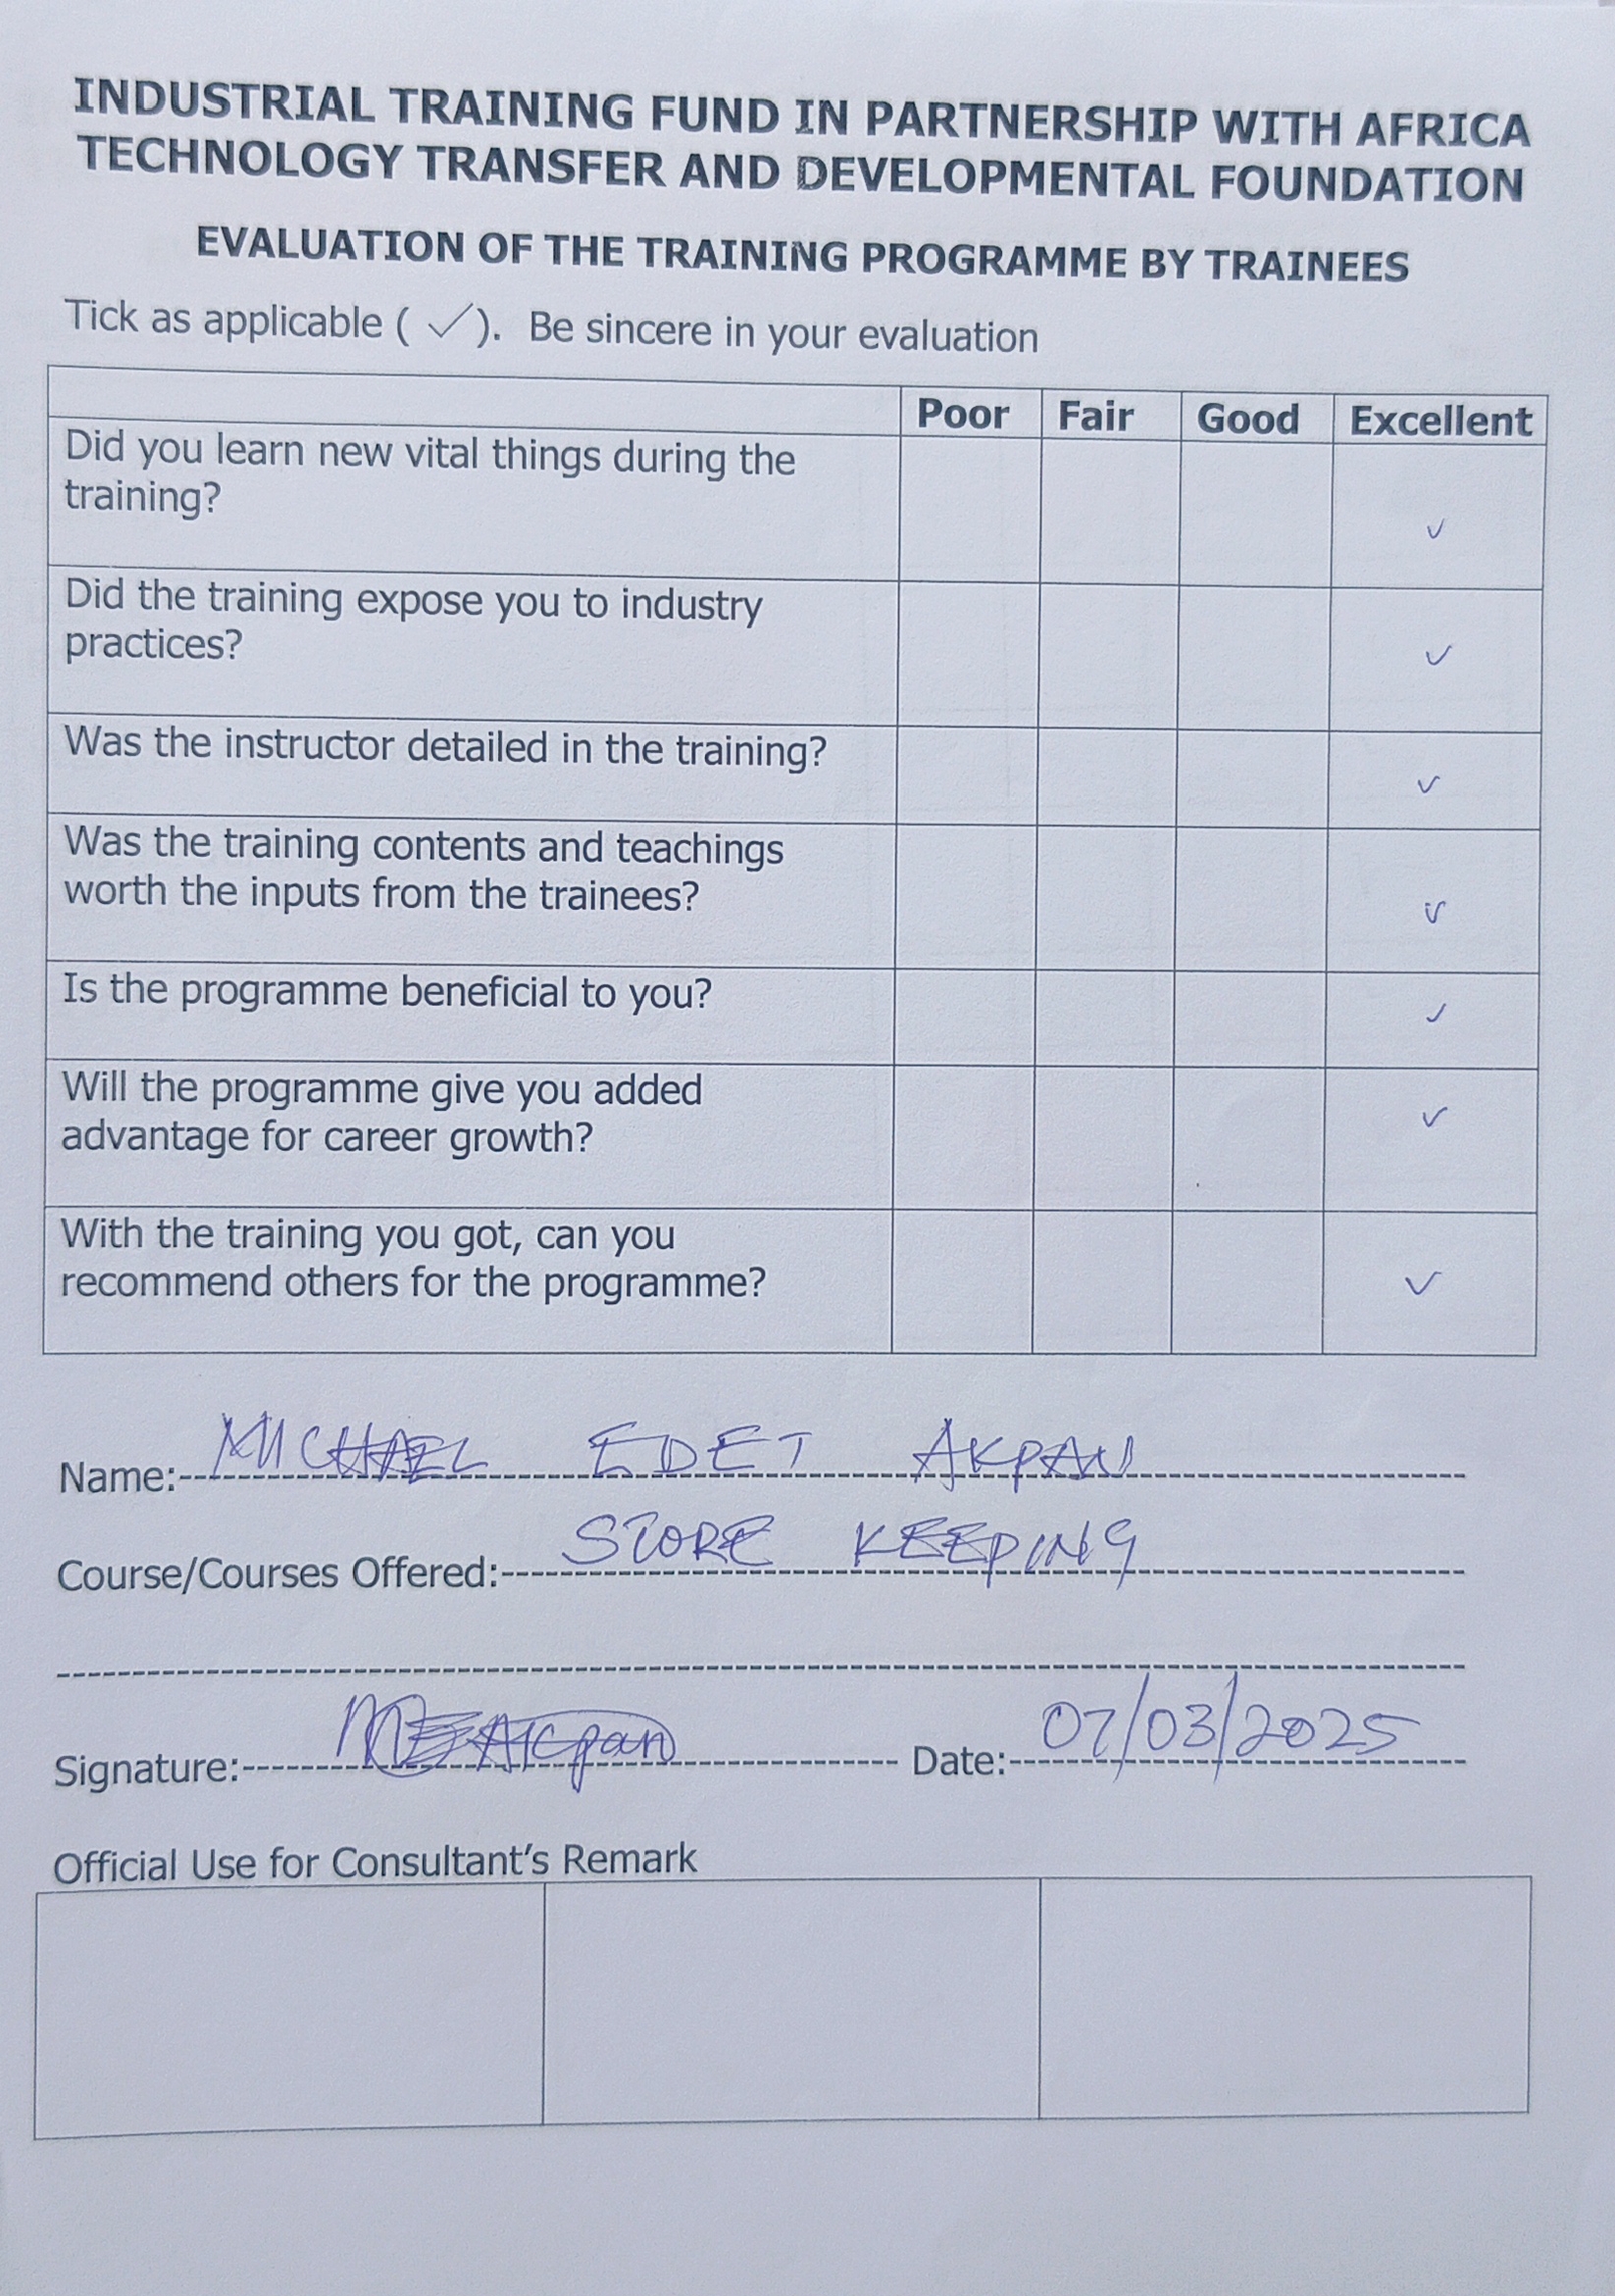 INDUSTRIAL TRAINING FUND IN PARTNERSHIP WITH AFRICA
TECHNOLOGY TRANSFER AND DEVELOPMENTAL FOUNDATION
EVALUATION OF THE TRAINING PROGRAMME BY TRAINEES
Tick as applicable ( ✓). Be sincere in your evaluation
Poor Fair Good Excellent
Did you learn new vital things during the
training?
✓
Did the training expose you to industry
practices? ✓
Was the instructor detailed in the training?
✓
Was the training contents and teachings
worth the inputs from the trainees? ✓
Is the programme beneficial to you? ✓
Will the programme give you added
advantage for career growth? ✓
With the training you got, can you
recommend others for the programme? ✓
Name: MICHAEL EDET AKPAN
Course/Courses Offered: STORE KEEPING
Signature: MEAkpan Date: 07/03/2025
Official Use for Consultant's Remark